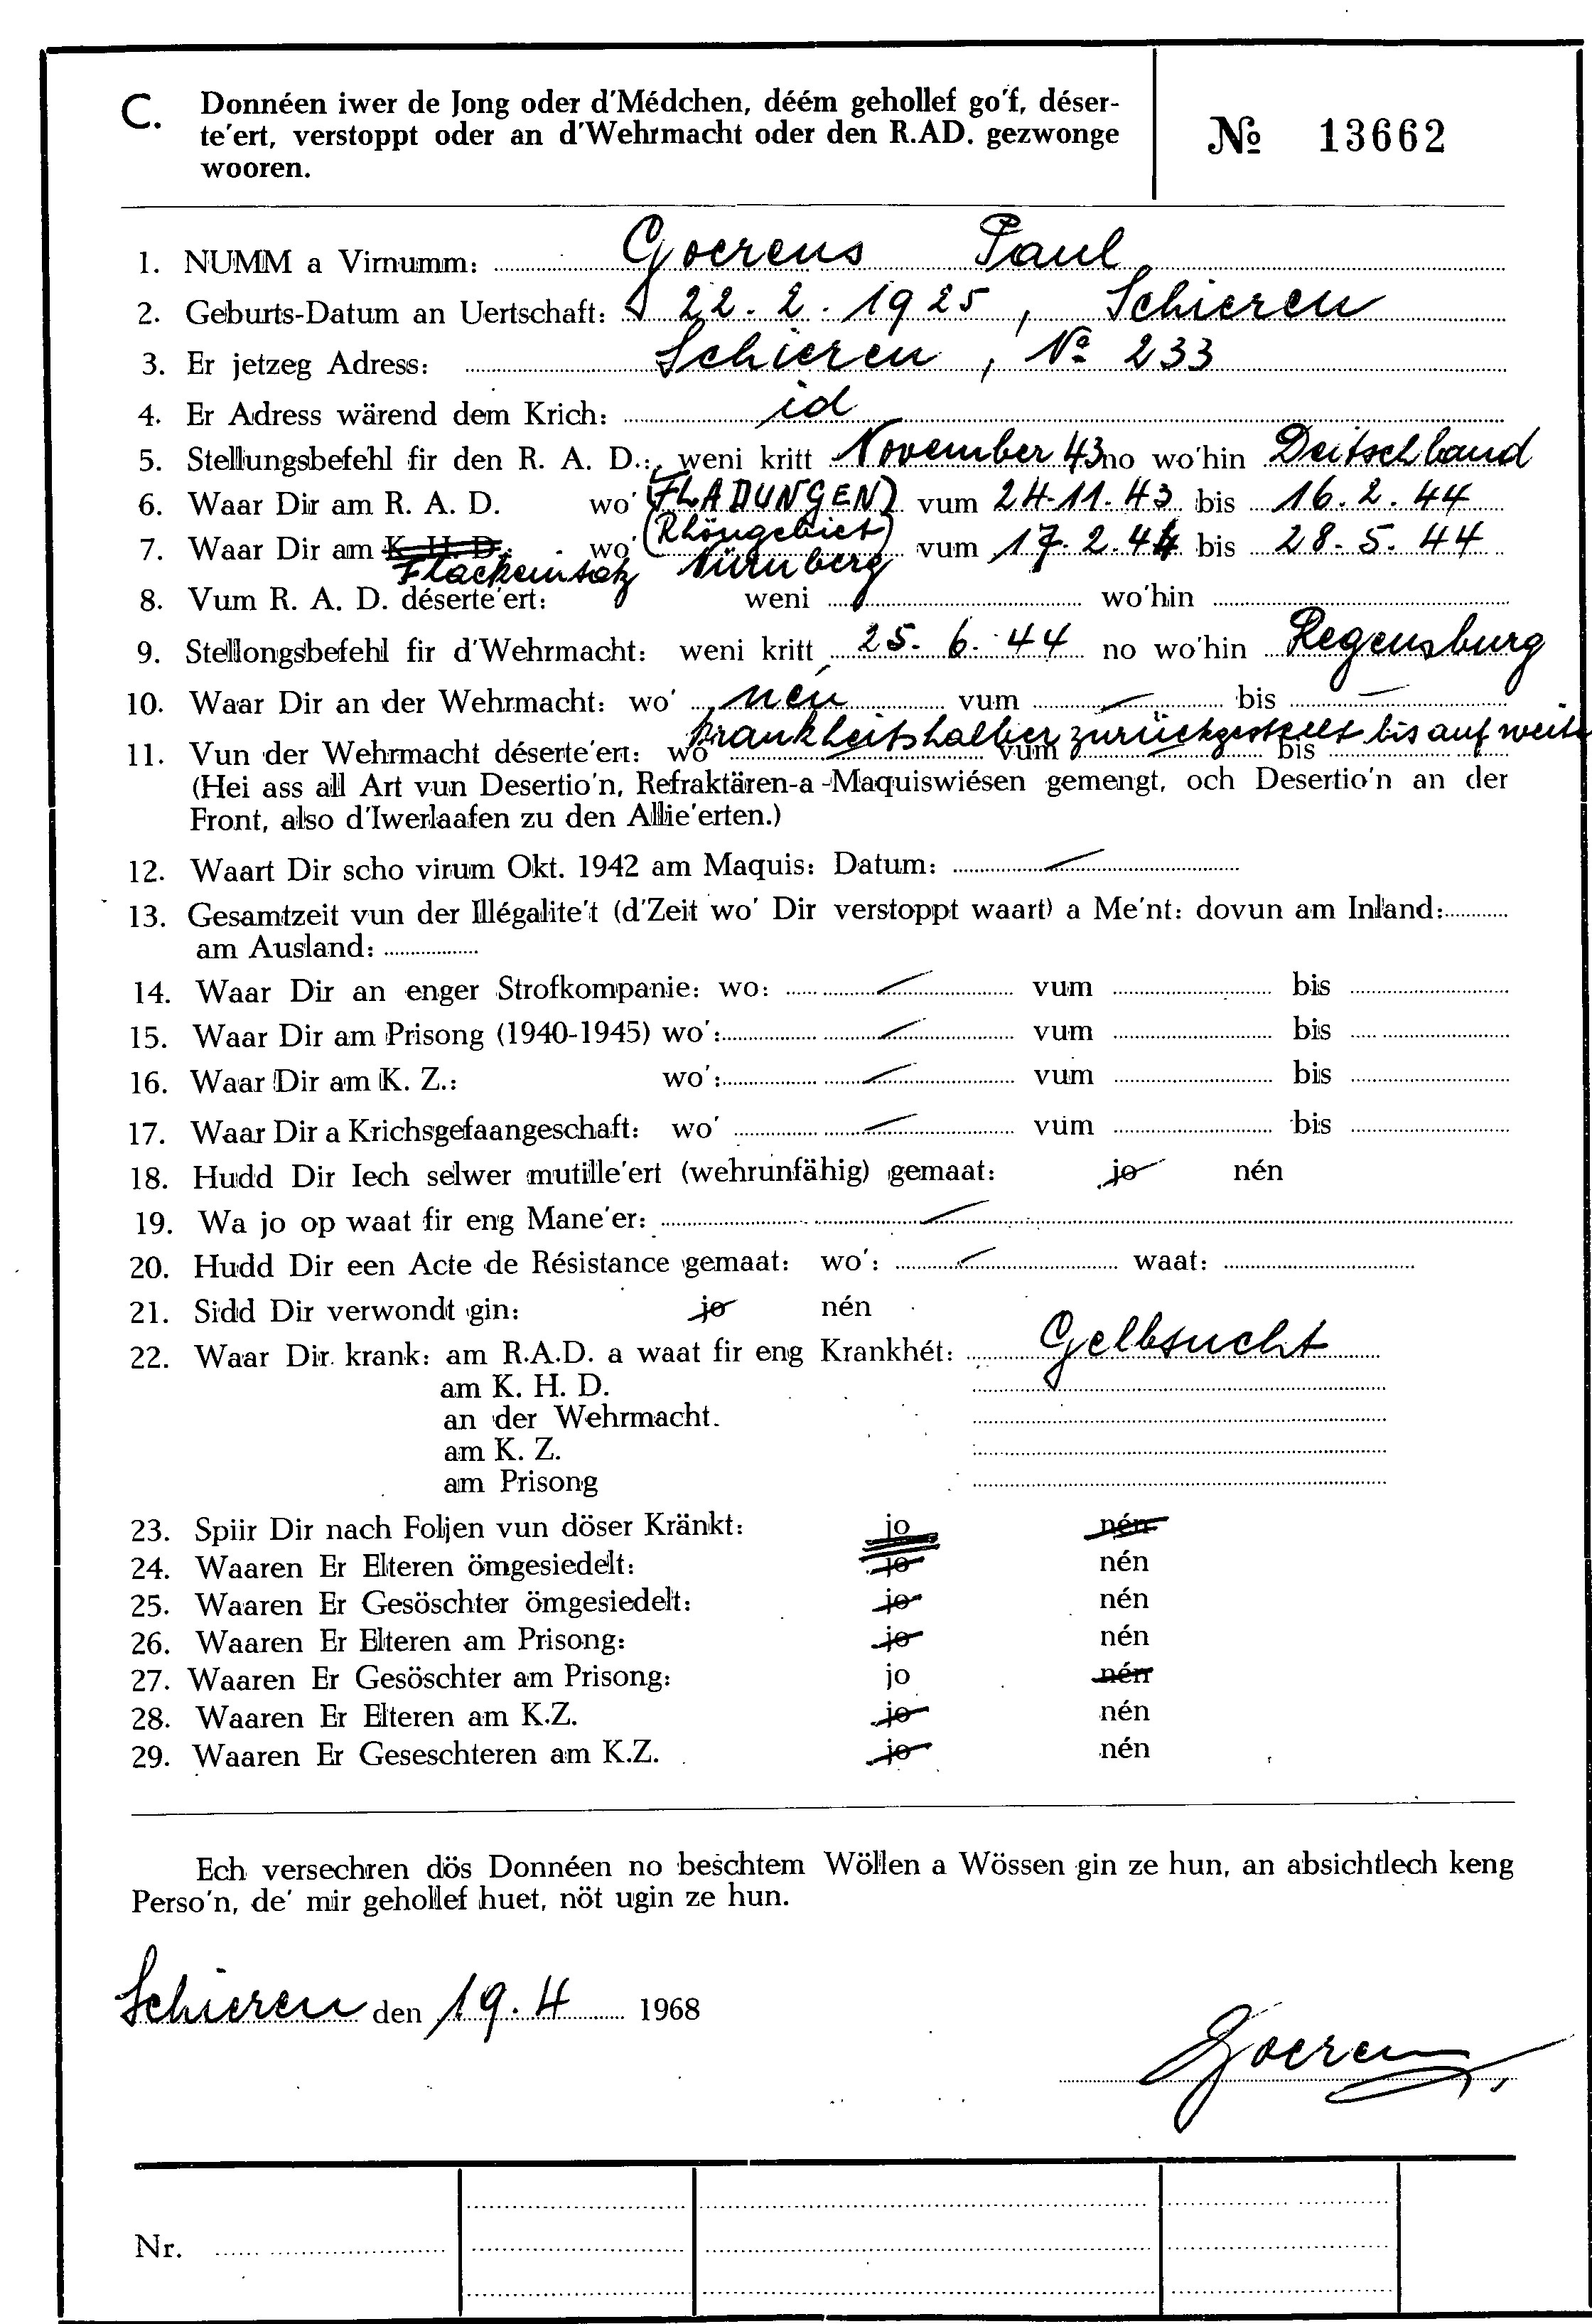 C. Donnéen iwer de Jong oder d'Médchen, déém gehollef go'f, déser-
te'ert, verstoppt oder an d'Wehrmacht oder den R.AD. gezwonge
wooren.
№ 13662
1. NUMM a Virnumm: Goerens Paul
2. Geburts-Datum an Uertschaft: 22.2.1925, Schieren
3. Er jetzeg Adress: Schieren, № 233
4. Er Adress wärend dem Krich: id
5. Stellungsbefehl fir den R. A. D.: weni kritt November 43 no wo'hin Deitschland
6. Waar Dir am R. A. D. wo' (FLADUNGEN) vum 24.11.43 bis 16.2.44
(Rhöngebiet)
7. Waar Dir am K. H. D. wo' vum 17.2.44 bis 28.5.44
Flackeinsatz Nürnberg
8. Vum R. A. D. déserte'ert: weni wo'hin
9. Stellongsbefehl fir d'Wehrmacht: weni kritt 25.6.44 no wo'hin Regensburg
10. Waar Dir an der Wehrmacht: wo' nén vum — bis —
krankheitshalber zurückgestellt bis auf weite
11. Vun der Wehrmacht déserte'ert: wo' vum bis
(Hei ass all Art vun Desertio'n, Refraktären-a-Maquiswiésen gemengt, och Desertio'n an der
Front, also d'Iwerlaafen zu den Allie'erten.)
12. Waart Dir scho virum Okt. 1942 am Maquis: Datum: —
13. Gesamtzeit vun der Illégalite't (d'Zeit wo' Dir verstoppt waart) a Me'nt: dovun am Inland:
am Ausland:
14. Waar Dir an enger Strofkompanie: wo: — vum bis
15. Waar Dir am Prisong (1940-1945) wo': — vum bis
16. Waar Dir am K. Z.: wo': — vum bis
17. Waar Dir a Krichsgefaangeschaft: wo' — vum bis
18. Hudd Dir Iech selwer mutille'ert (wehrunfähig) gemaat: jo nén
19. Wa jo op waat fir eng Mane'er: —
20. Hudd Dir een Acte de Résistance gemaat: wo': — waat:
21. Sidd Dir verwondt gin: jo nén
22. Waar Dir krank: am R.A.D. a waat fir eng Krankhét: Gelbsucht
am K. H. D.
an der Wehrmacht.
am K. Z.
am Prisong
23. Spiir Dir nach Foljen vun döser Kränkt: jo nén
24. Waaren Er Elteren ömgesiedelt: jo nén
25. Waaren Er Gesöschter ömgesiedelt: jo nén
26. Waaren Er Elteren am Prisong: jo nén
27. Waaren Er Gesöschter am Prisong: jo nén
28. Waaren Er Elteren am K.Z. jo nén
29. Waaren Er Geseschteren am K.Z. jo nén
Ech versechren dös Donnéen no beschtem Wöllen a Wössen gin ze hun, an absichtlech keng
Perso'n, de' mir gehollef huet, nöt ugin ze hun.
Schieren den 19.4 1968
Goerens
Nr.